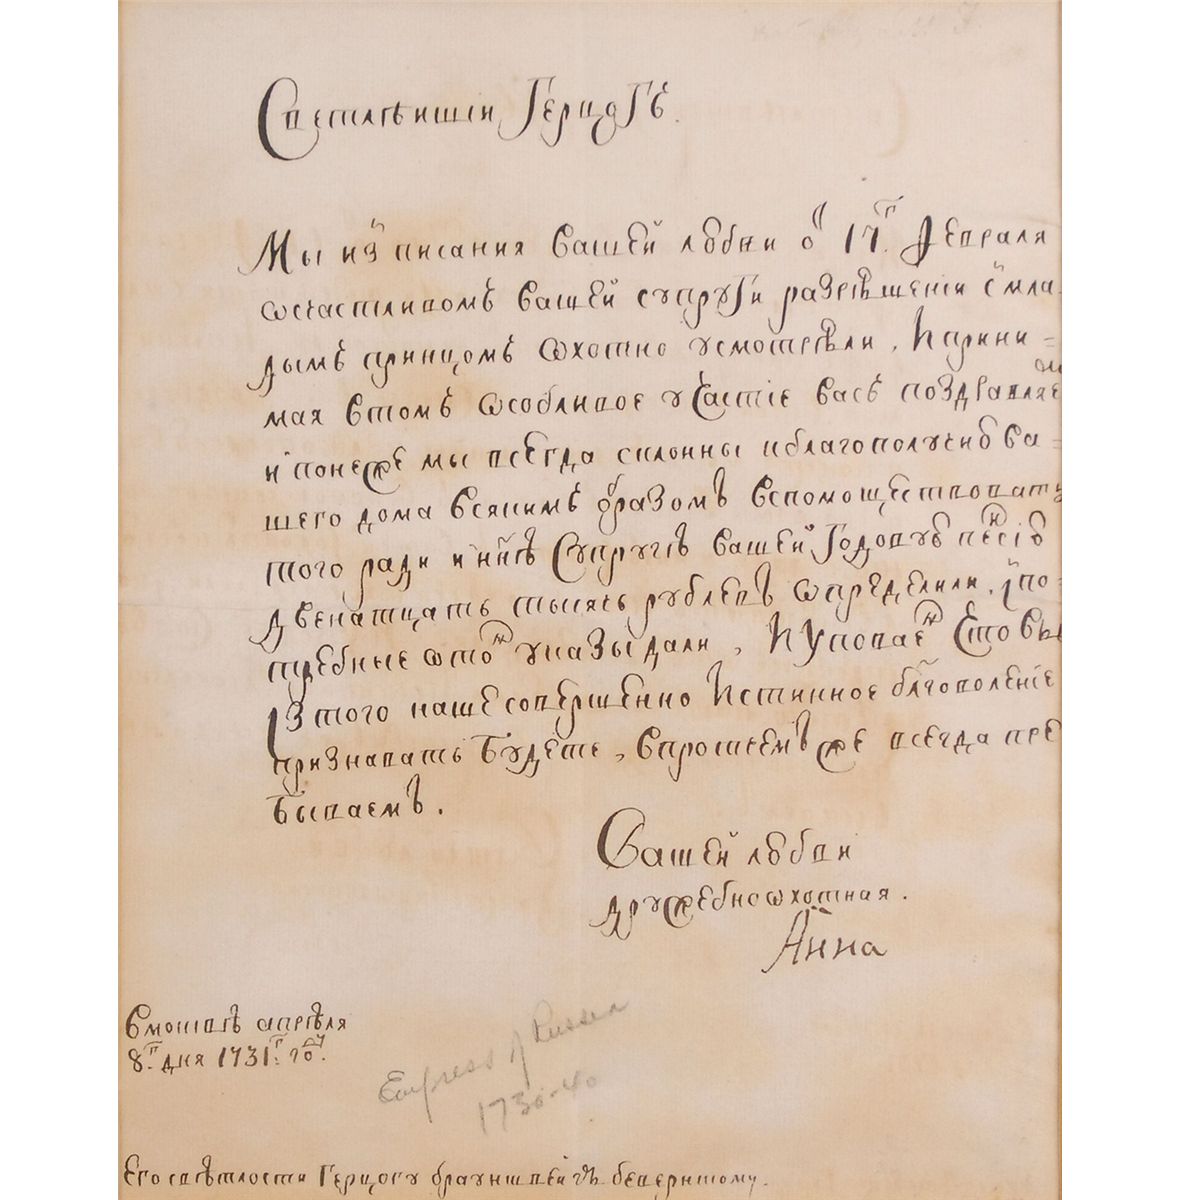 Светлѣишии Герцогъ.
Мы из писания вашей любви о 17г. Февраля
ѡсчастливомъ вашей супруги разрѣшении с мла
дымъ принцомъ ѡхотно усмотрѣли, И прини=
мая втомъ ѡсобливое участие васъ поздравляем
и понеже мы всегда склонны кблагополучию ва=
шего дома всякимъ образомъ вспомоществовать
того ради и ннѣ Супругѣ вашей Годовую пенсию
двенатцать тысячь рублевъ ѡпределили, и по=
требные ѡтом указы дали, И Уповаем Что вы
Изтого наше совершенно Истинное благоволение
признавать Будете, впротчемъ же всегда пре
бываемъ.
Вашей любви
дружебноѡхотная.
Анна
Вмосквѣ апрѣля
8г. дня 1731г. году.
Empress of Russia
1730-40
Его свѣтлости Герцогу брауншвейгъ бевернскому.